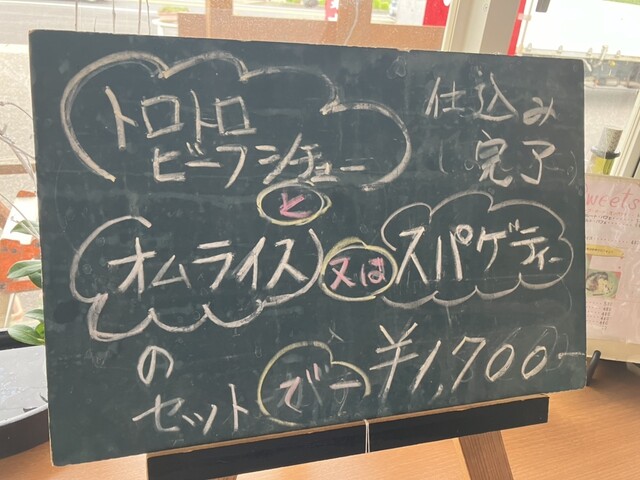 トロトロ
ビーフシチュー
仕込み
完了
と
オムライス 又は スパゲティー
の
セット でー ¥1,700-
weets